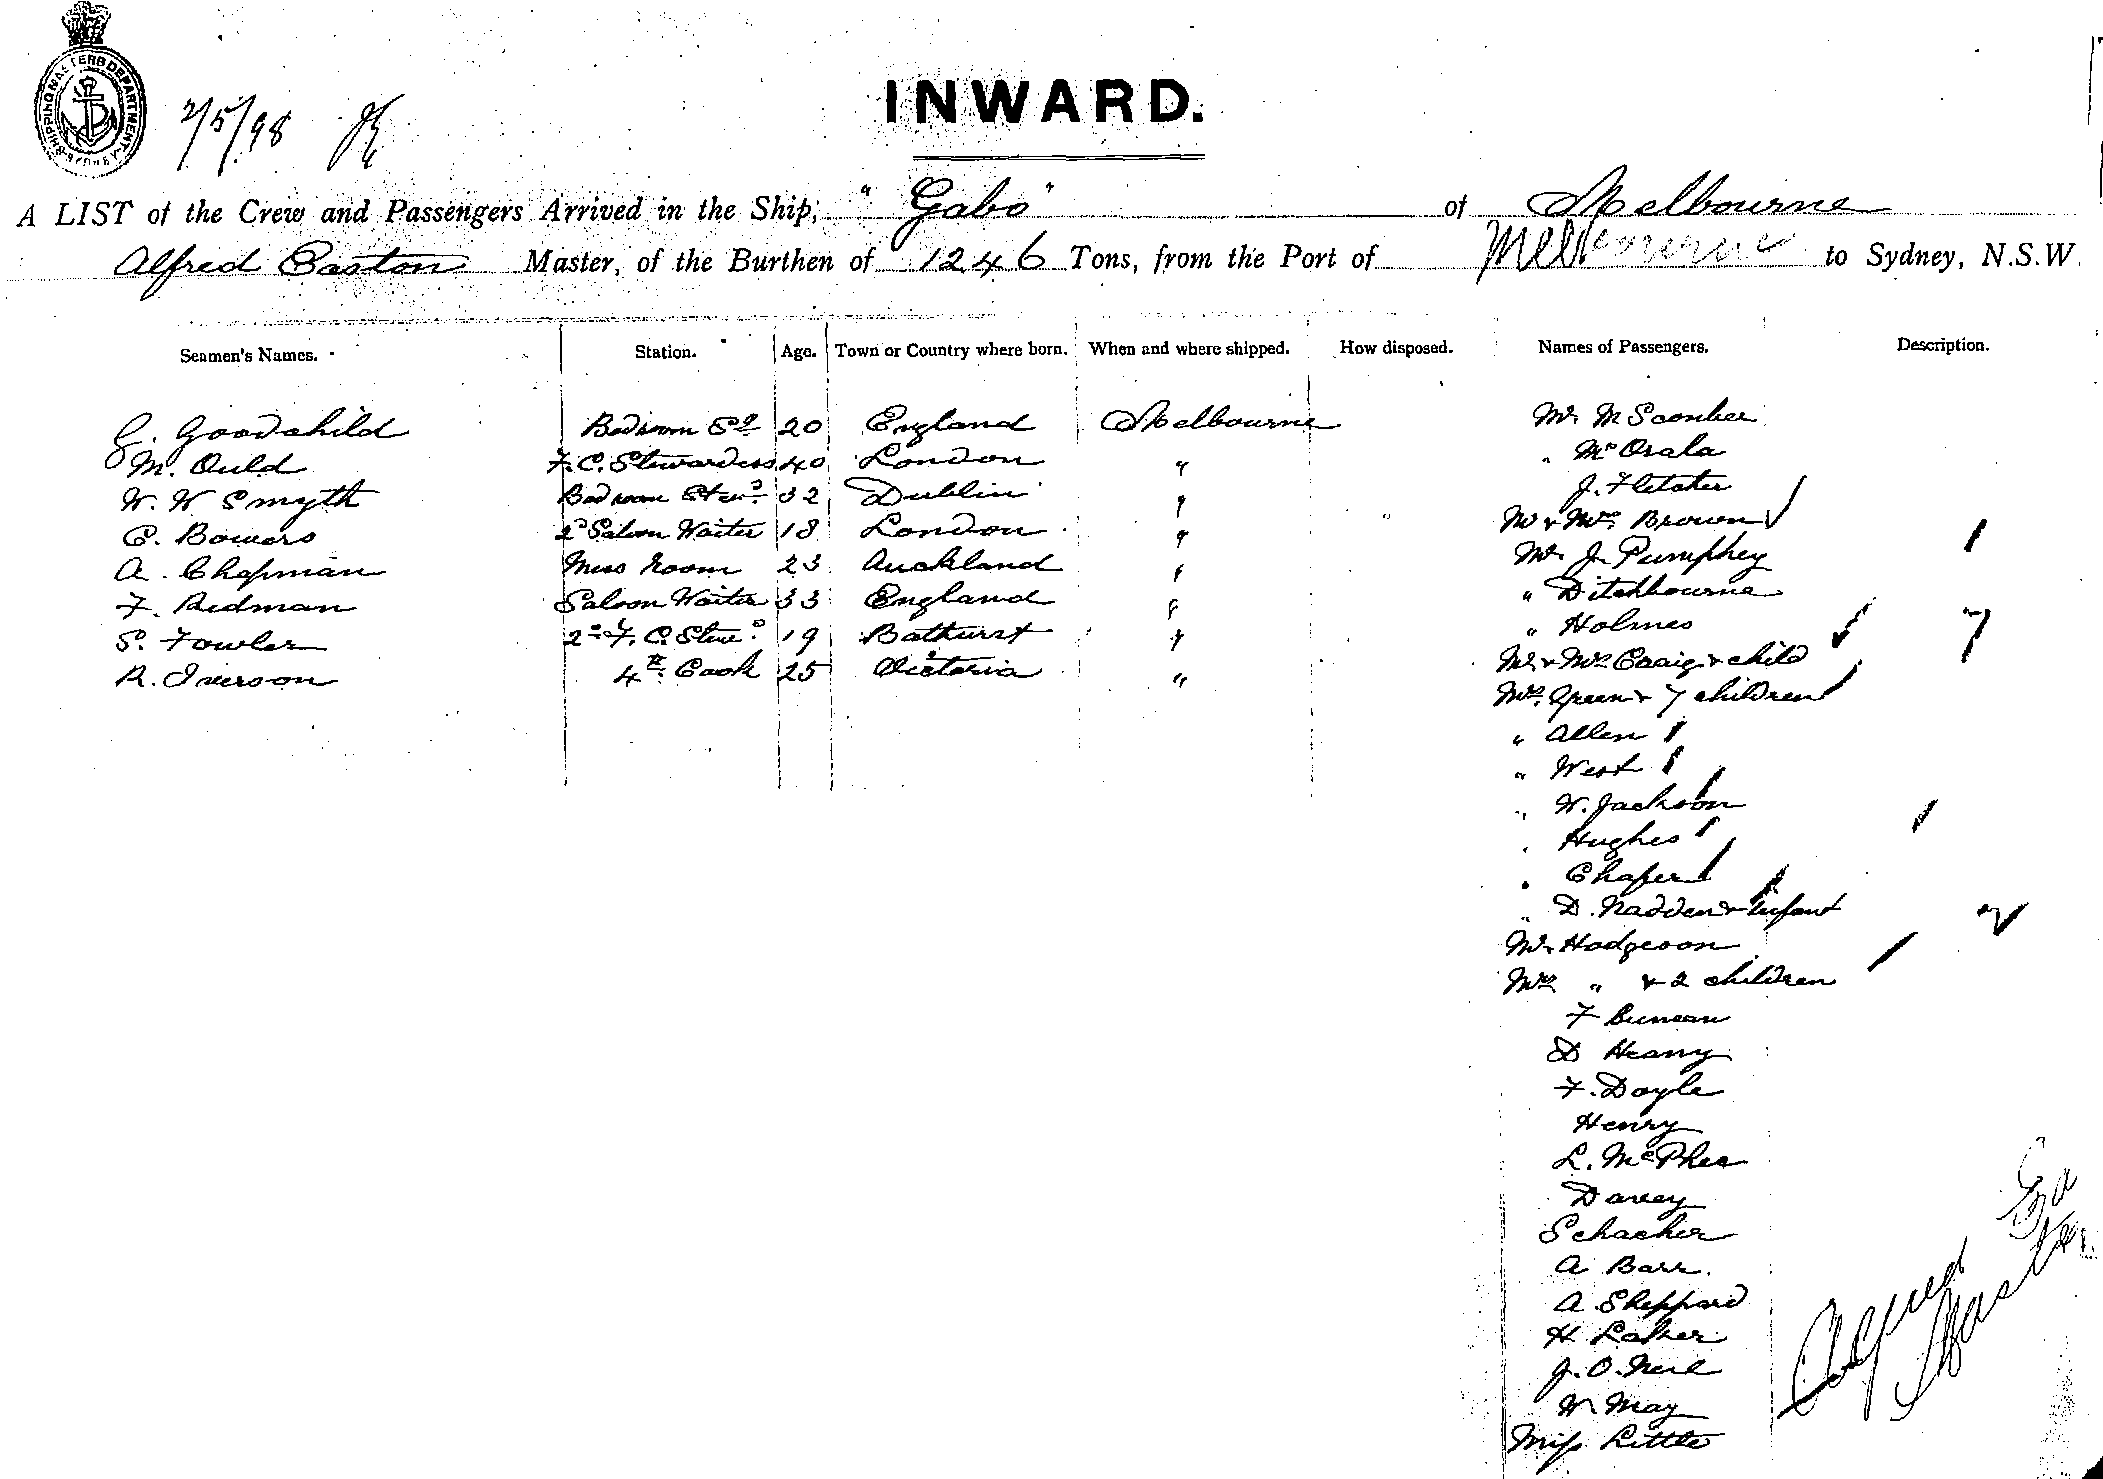 SHIPPING MASTERS DEPARTMENT
2/5/98
INWARD.
A LIST of the Crew and Passengers Arrived in the Ship, "Gabo" of Melbourne
Alfred Easton Master, of the Burthen of 1246 Tons, from the Port of Melbourne to Sydney, N.S.W.
Seamen's Names. Station. Age. Town or Country where born. When and where shipped. How disposed. Names of Passengers. Description.
G. Goodchild Bedroom Sd 20 England Melbourne
M. Ould F.C. Stewardess 40 London "
W. W Smyth Bedroom Stewd 32 Dublin "
C. Bowers 2d Saloon Waiter 18 London "
A. Chapman Mess Room 23 Auckland "
F. Redman Saloon Waiter 33 England "
S. Fowler 2nd F.C. Stewd 19 Bathurst "
R. Iverson 4th Cook 25 Victoria "
Mr M Scomber
" McOrala
J. Fletcher
Mr & Mrs Brown
Mr J. Pumphey
" Ditchbourne
" Holmes
Mr & Mrs Craig & child
Mrs Green & 7 children
" Allen
" West
" W. Jackson
" Hughes
" Chafer
" D. Nadden & Infant
Mr Hodgeson
Mrs " & 2 children
F Duncan
D Heany
F. Doyle
Henry
L. McPhee
Davey
Schacher
A Barr.
A Sheppard
H Laker
J. O. Neil
W May
Miss Little
Alfred Easton
Master